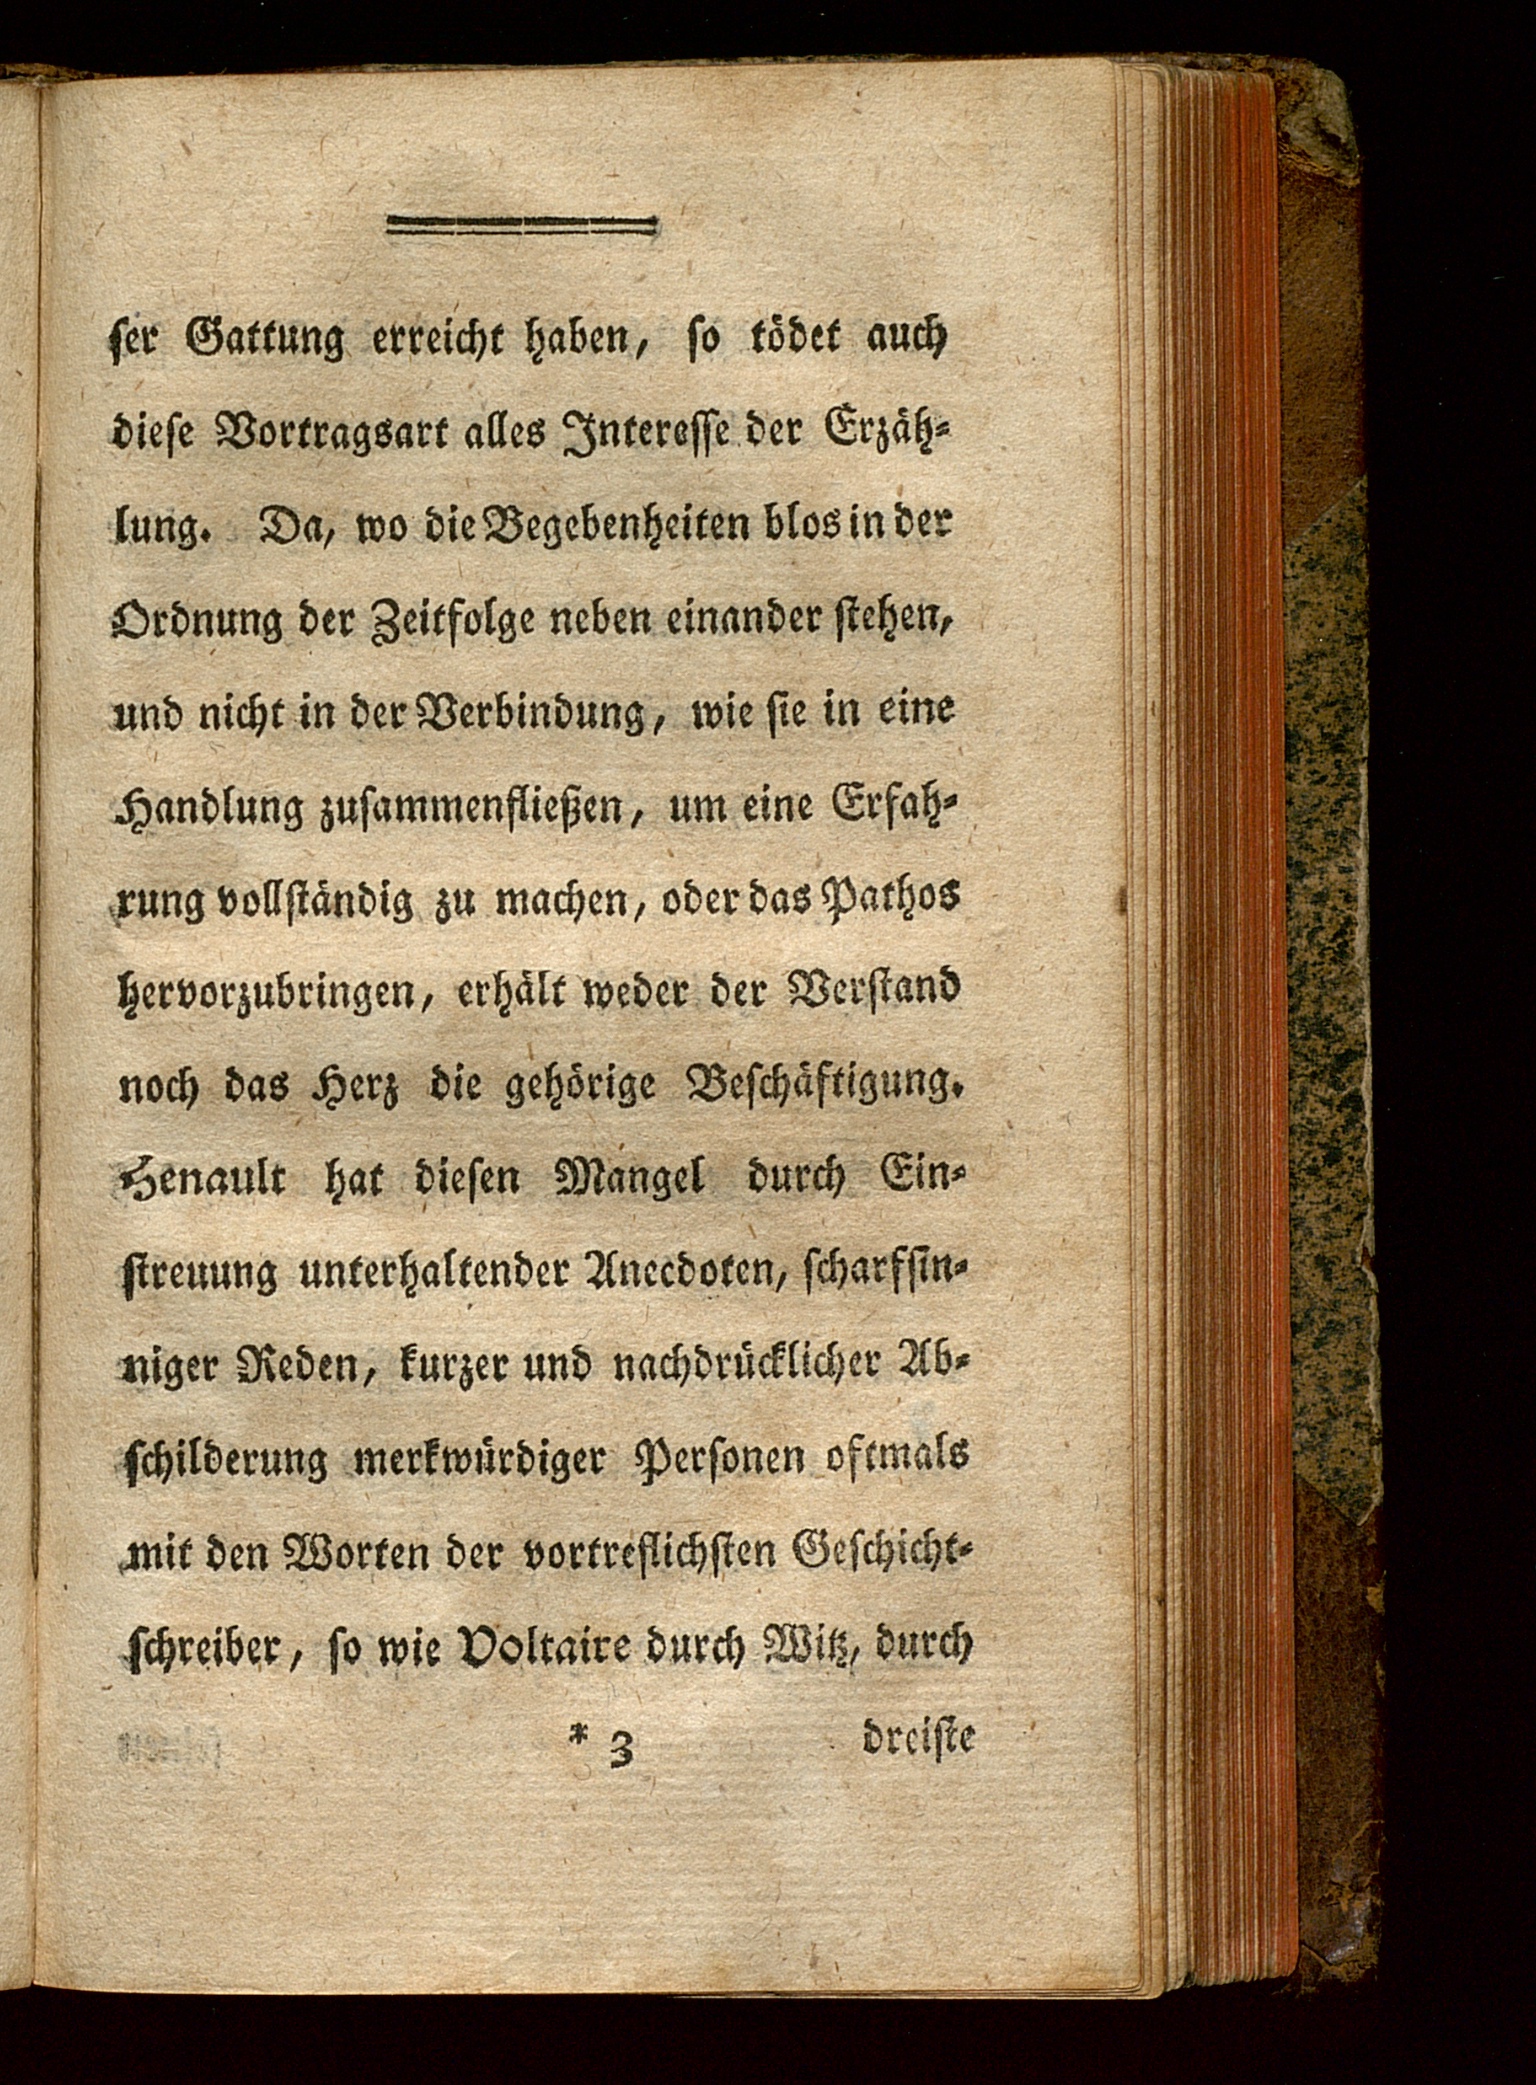 ſer Gattung erreicht haben, ſo tödet auch
dieſe Vortragsart alles Intereſſe der Erzäh-
lung. Da, wo die Begebenheiten blos in der
Ordnung der Zeitfolge neben einander ſtehen,
und nicht in der Verbindung, wie ſie in eine
Handlung zuſammenfließen, um eine Erfah-
rung vollſtändig zu machen, oder das Pathos
hervorzubringen, erhält weder der Verſtand
noch das Herz die gehörige Beſchäftigung.
Henault hat dieſen Mangel durch Ein-
ſtreuung unterhaltender Anecdoten, ſcharfſin-
niger Reden, kurzer und nachdrücklicher Ab-
ſchilderung merkwürdiger Perſonen oftmals
mit den Worten der vortreflichſten Geſchicht-
ſchreiber, ſo wie Voltaire durch Witz, durch
* 3 dreiſte